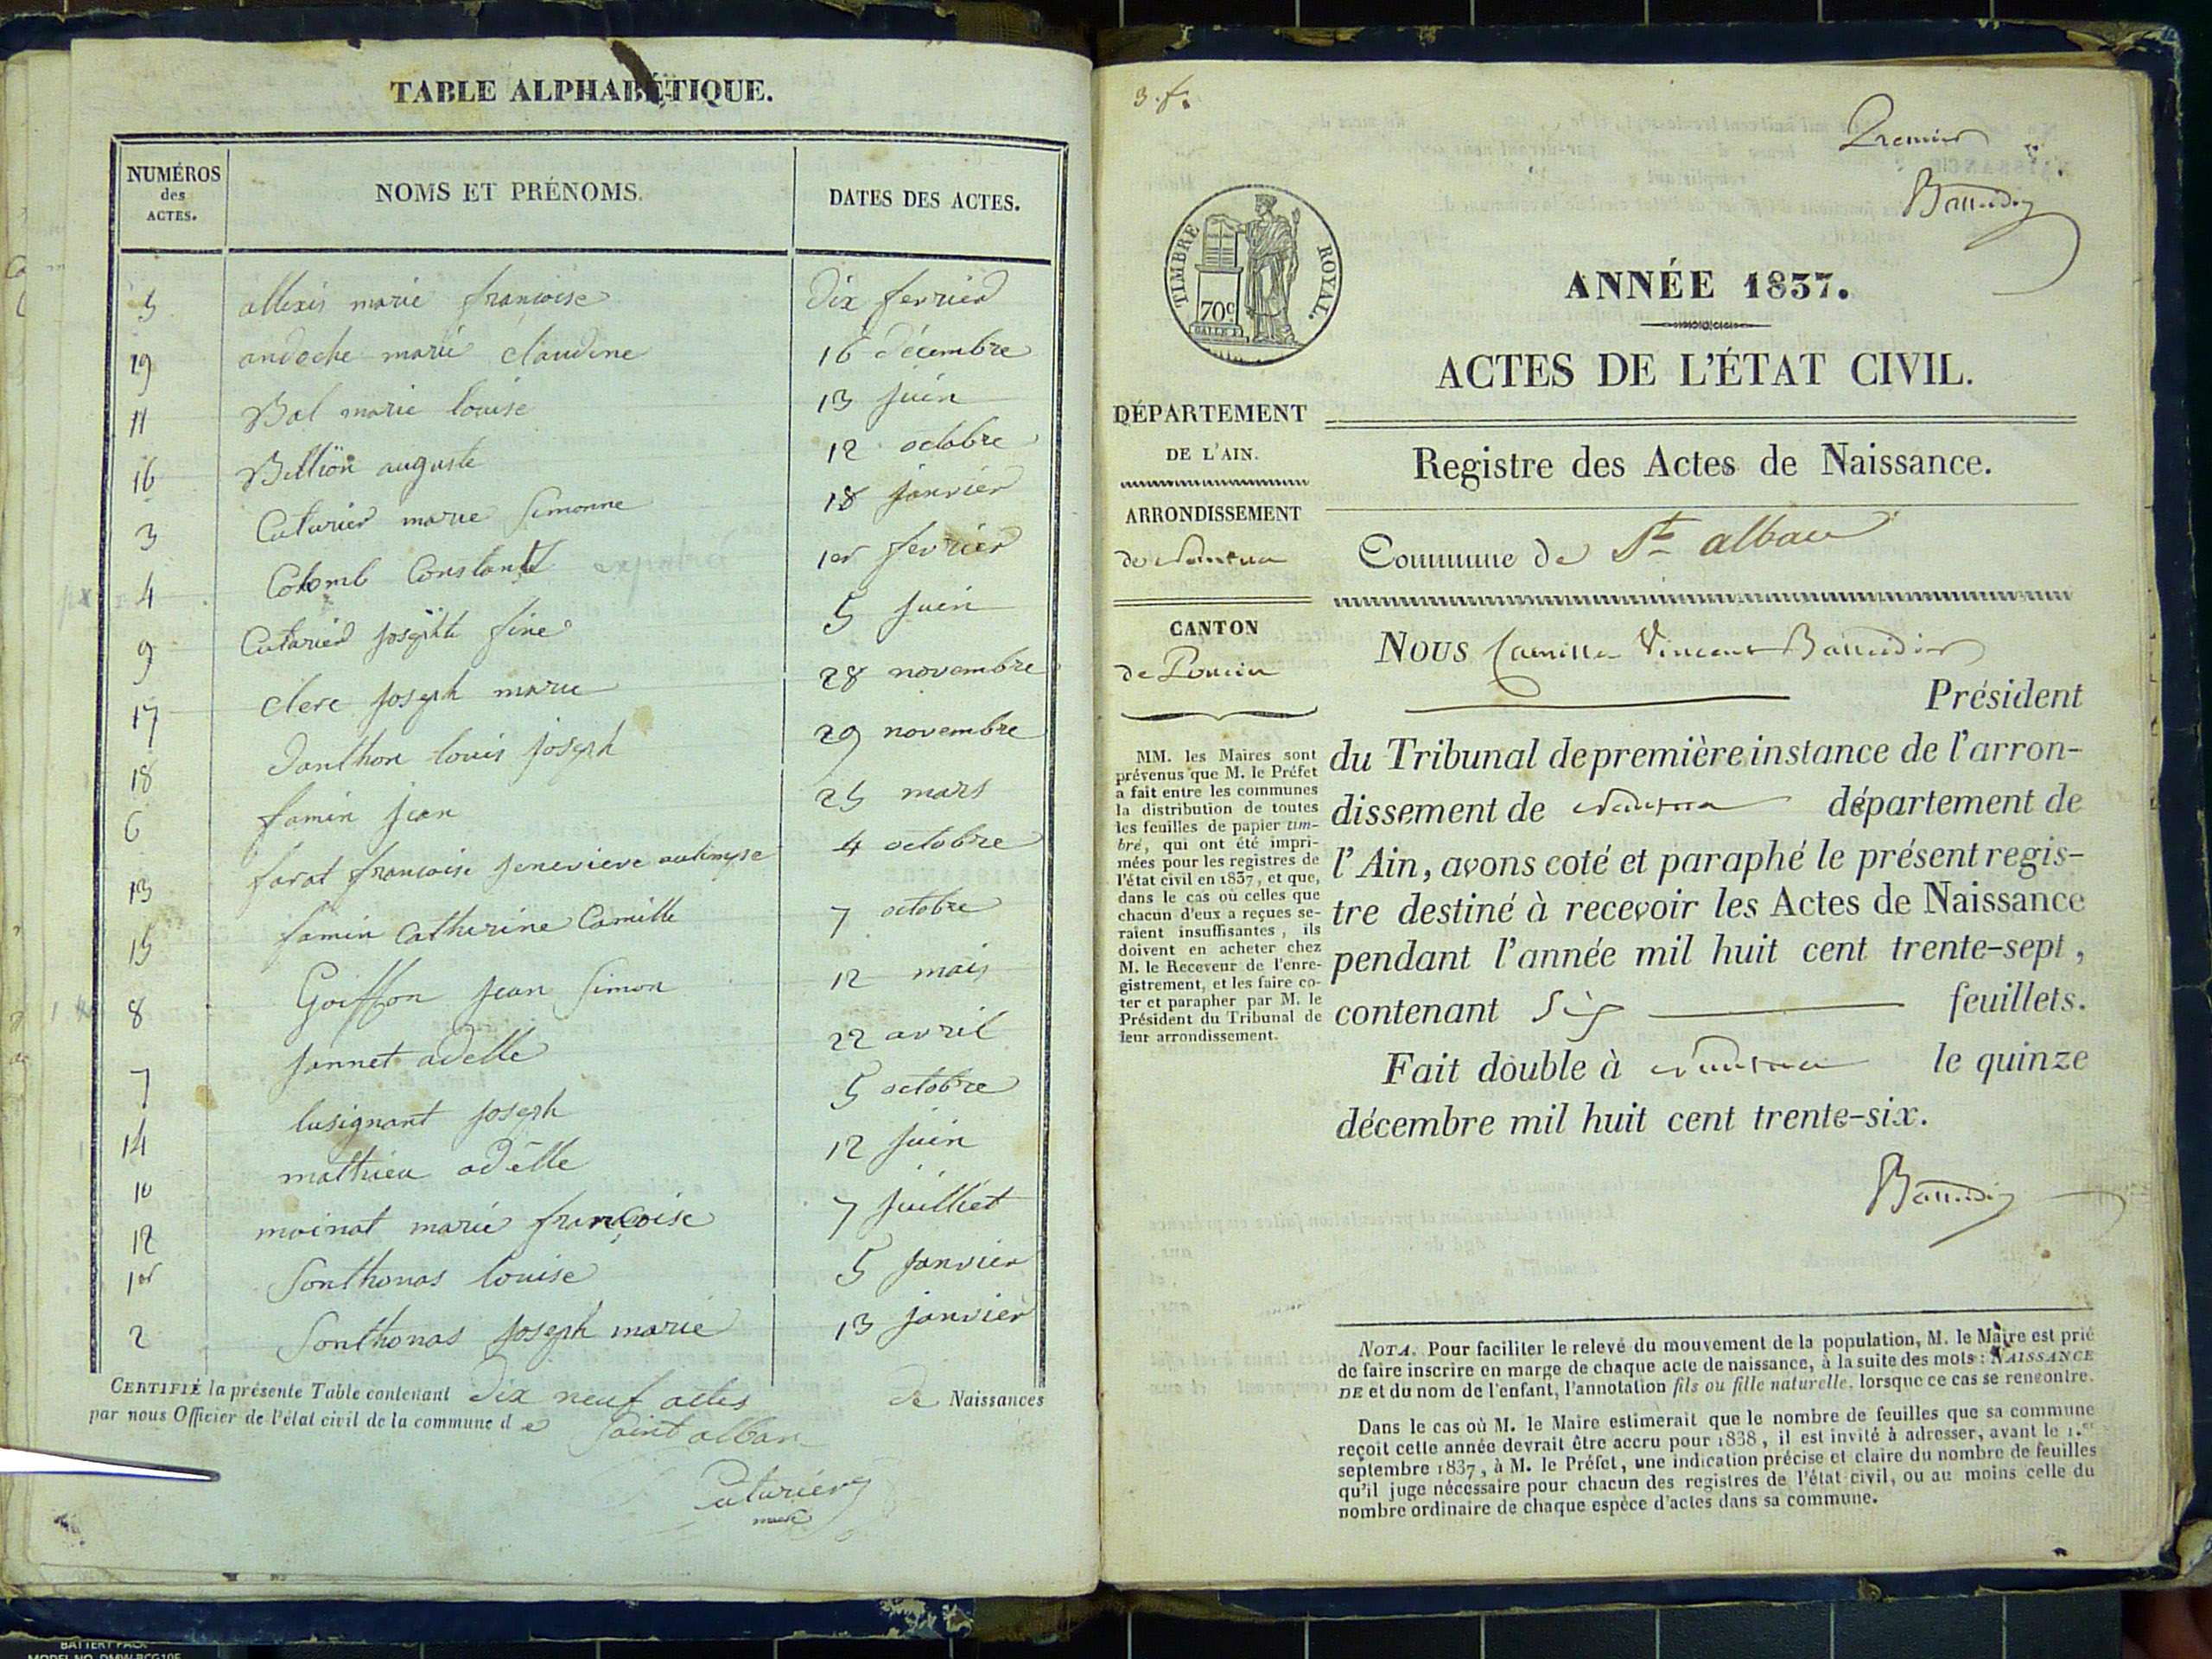 TABLE ALPHABÉTIQUE.
NUMÉROS des ACTES. NOMS ET PRÉNOMS. DATES DES ACTES.
5 allexis marie françoise dix fevrier
19 andoche marie claudine 16 décembre
11 Bal marie louise 13 juin
16 Billion auguste 12 octobre
3 Cuturier marie Simonne 18 janvier
4 Colomb Constant 1er fevrier
9 Cuturier josephte fine 5 juin
17 clerc joseph marie 28 novembre
18 Danthon louis joseph 29 novembre
6 famin jean 25 mars
13 farat françoise jenevieve 4 octobre
15 famin Catherine Camille 7 octobre
8 Goiffon jean Simon 12 mais
7 jannet adelle 22 avril
14 lusignant joseph 5 octobre
10 mathieu adélle 12 juin
12 moinat marie françoise 7 juilliet
1er Sonthonas louise 5 janvier
2 Sonthonas joseph marie 13 janvier
CERTIFIÉ la présente Table contenant dix neuf actes de Naissances
par nous Officier de l'état civil de la commune de Saint alban
Cuturier
maire
3. f.
Premier
TIMBRE ROYAL.
70c
ANNÉE 1837.
ACTES DE L'ÉTAT CIVIL.
Registre des Actes de Naissance.
Commune de St alban
DÉPARTEMENT
DE L'AIN.
ARRONDISSEMENT
de Nantua
CANTON
de Poncin
MM. les Maires sont
prévenus que M. le Préfet
a fait entre les communes
la distribution de toutes
les feuilles de papier tim-
bré, qui ont été impri-
mées pour les registres de
l'état civil en 1837, et que,
dans le cas où celles que
chacun d'eux a reçues se-
raient insuffisantes, ils
doivent en acheter chez
M. le Receveur de l'enre-
gistrement, et les faire co-
ter et parapher par M. le
Président du Tribunal de
leur arrondissement.
Nous Camille Vincent
Président
du Tribunal de première instance de l'arron-
dissement de Nantua département de
l'Ain, avons coté et paraphé le présent regis-
tre destiné à recevoir les Actes de Naissance
pendant l'année mil huit cent trente-sept,
contenant Six feuillets.
Fait double à Nantua le quinze
décembre mil huit cent trente-six.
NOTA. Pour faciliter le relevé du mouvement de la population, M. le Maire est prié
de faire inscrire en marge de chaque acte de naissance, à la suite des mots : NAISSANCE
DE et du nom de l'enfant, l'annotation fils ou fille naturelle, lorsque ce cas se rencontre.
Dans le cas où M. le Maire estimerait que le nombre de feuilles que sa commune
reçoit cette année devrait être accru pour 1838, il est invité à adresser, avant le 1.er
septembre 1837, à M. le Préfet, une indication précise et claire du nombre de feuilles
qu'il juge nécessaire pour chacun des registres de l'état civil, ou au moins celle du
nombre ordinaire de chaque espèce d'actes dans sa commune.
BATTERY PACK